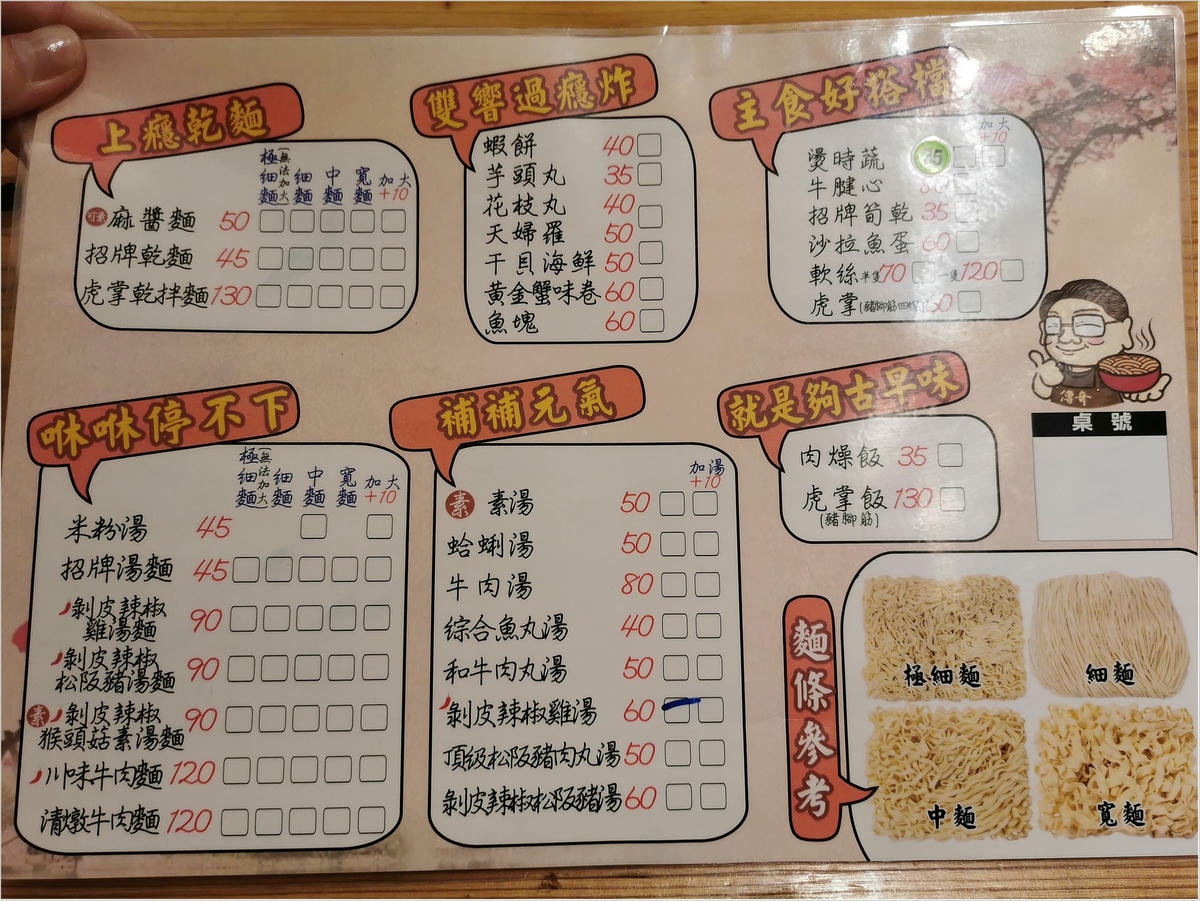 上癮乾麵
極細麵 (無法加大) 細麵 中麵 寬麵 加大+10
可素 麻醬麵 50
招牌乾麵 45
虎掌乾拌麵 130
雙響過癮炸
蝦餅 40
芋頭丸 35
花枝丸 40
天婦羅 50
干貝海鮮 50
黃金蟹味卷 60
魚塊 60
主食好搭檔
加大+10
燙時蔬 35
牛腱心
招牌筍乾 35
沙拉魚蛋 60
軟絲 半隻70 一隻120
虎掌(豬腳筋四塊) 60
咻咻停不下
極細麵 (無法加大) 細麵 中麵 寬麵 加大+10
米粉湯 45
招牌湯麵 45
剝皮辣椒
雞湯麵 90
剝皮辣椒
松阪豬湯麵 90
素 剝皮辣椒
猴頭菇素湯麵 90
川味牛肉麵 120
清燉牛肉麵 120
補補元氣
加湯+10
素 素湯 50
蛤蜊湯 50
牛肉湯 80
綜合魚丸湯 40
和牛肉丸湯 50
剝皮辣椒雞湯 60
頂級松阪豬肉丸湯 50
剝皮辣椒松阪豬湯 60
就是夠古早味
肉燥飯 35
虎掌飯 130
(豬腳筋)
傳奇
桌號
麵條參考
極細麵
細麵
中麵
寬麵